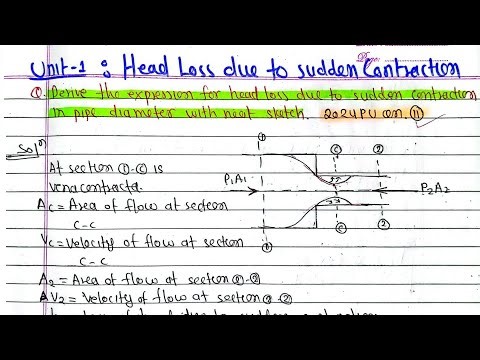 Unit-1 : Head Loss due to sudden Contraction
Q. Derive the experssion for head loss due to sudden contraction
in pipe diameter with neat sketch. 2024 PU con. 11
Solⁿ
At section C-C is
Vena contracta.
Ac = Area of flow at section
C-C
Vc = Velocity of flow at section
C-C
A2 = Area of flow at section 2-2
V2 = Velocity of flow at section 2-2
1
C
2
P1A1
P2A2
1
C
2